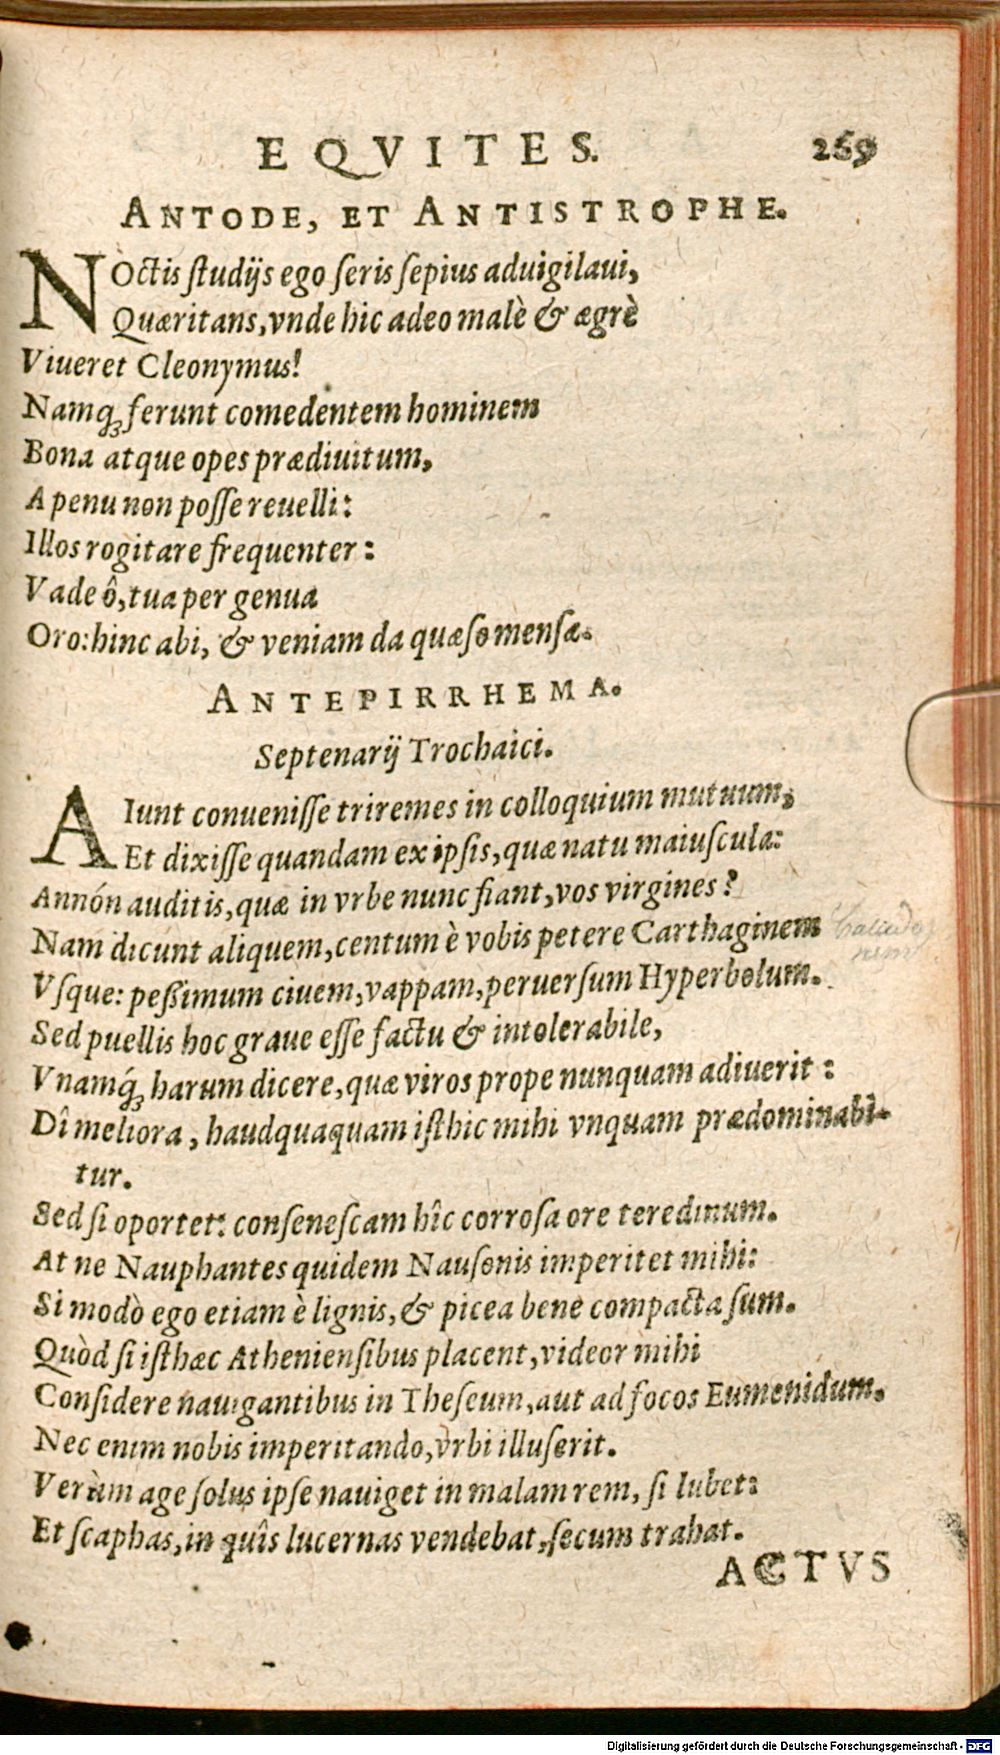 EQVITES. 269
ANTODE, ET ANTISTROPHE.
NOctis studijs ego seris sepius aduigilaui,
Quæritans, vnde hic adeo malè & ægrè
Viueret Cleonymus!
Namq; ferunt comedentem hominem
Bona atque opes prædiuitum,
A penu non posse reuelli:
Illos rogitare frequenter:
Vade ô, tua per genua
Oro: hinc abi, & veniam da quæso mensæ.
ANTEPIRRHEMA.
Septenarij Trochaici.
AIunt conuenisse triremes in colloquium mutuum,
Et dixisse quandam ex ipsis, quæ natu maiuscula:
Annón auditis, quæ in vrbe nunc fiant, vos virgines?
Nam dicunt aliquem, centum è vobis petere Carthaginem
Vsque: pessimum ciuem, vappam, peruersum Hyperbolum.
Sed puellis hoc graue esse factu & intolerabile,
Vnamq́; harum dicere, quæ viros prope nunquam adiuerit:
Dî meliora, haudquaquam isthic mihi vnquam prædominabi-
tur.
Sed si oportet: consenescam hîc corrosa ore teredinum.
At ne Nauphantes quidem Nausonis imperitet mihi:
Si modò ego etiam è lignis, & picea bene compacta sum.
Quòd si isthæc Atheniensibus placent, videor mihi
Considere nauigantibus in Theseum, aut ad focos Eumenidum.
Nec enim nobis imperitando, vrbi illuserit.
Verùm age solus ipse nauiget in malam rem, si lubet:
Et scaphas, in quîs lucernas vendebat, secum trahat.
ACTVS
Digitalisierung gefördert durch die Deutsche Forschungsgemeinschaft - DFG